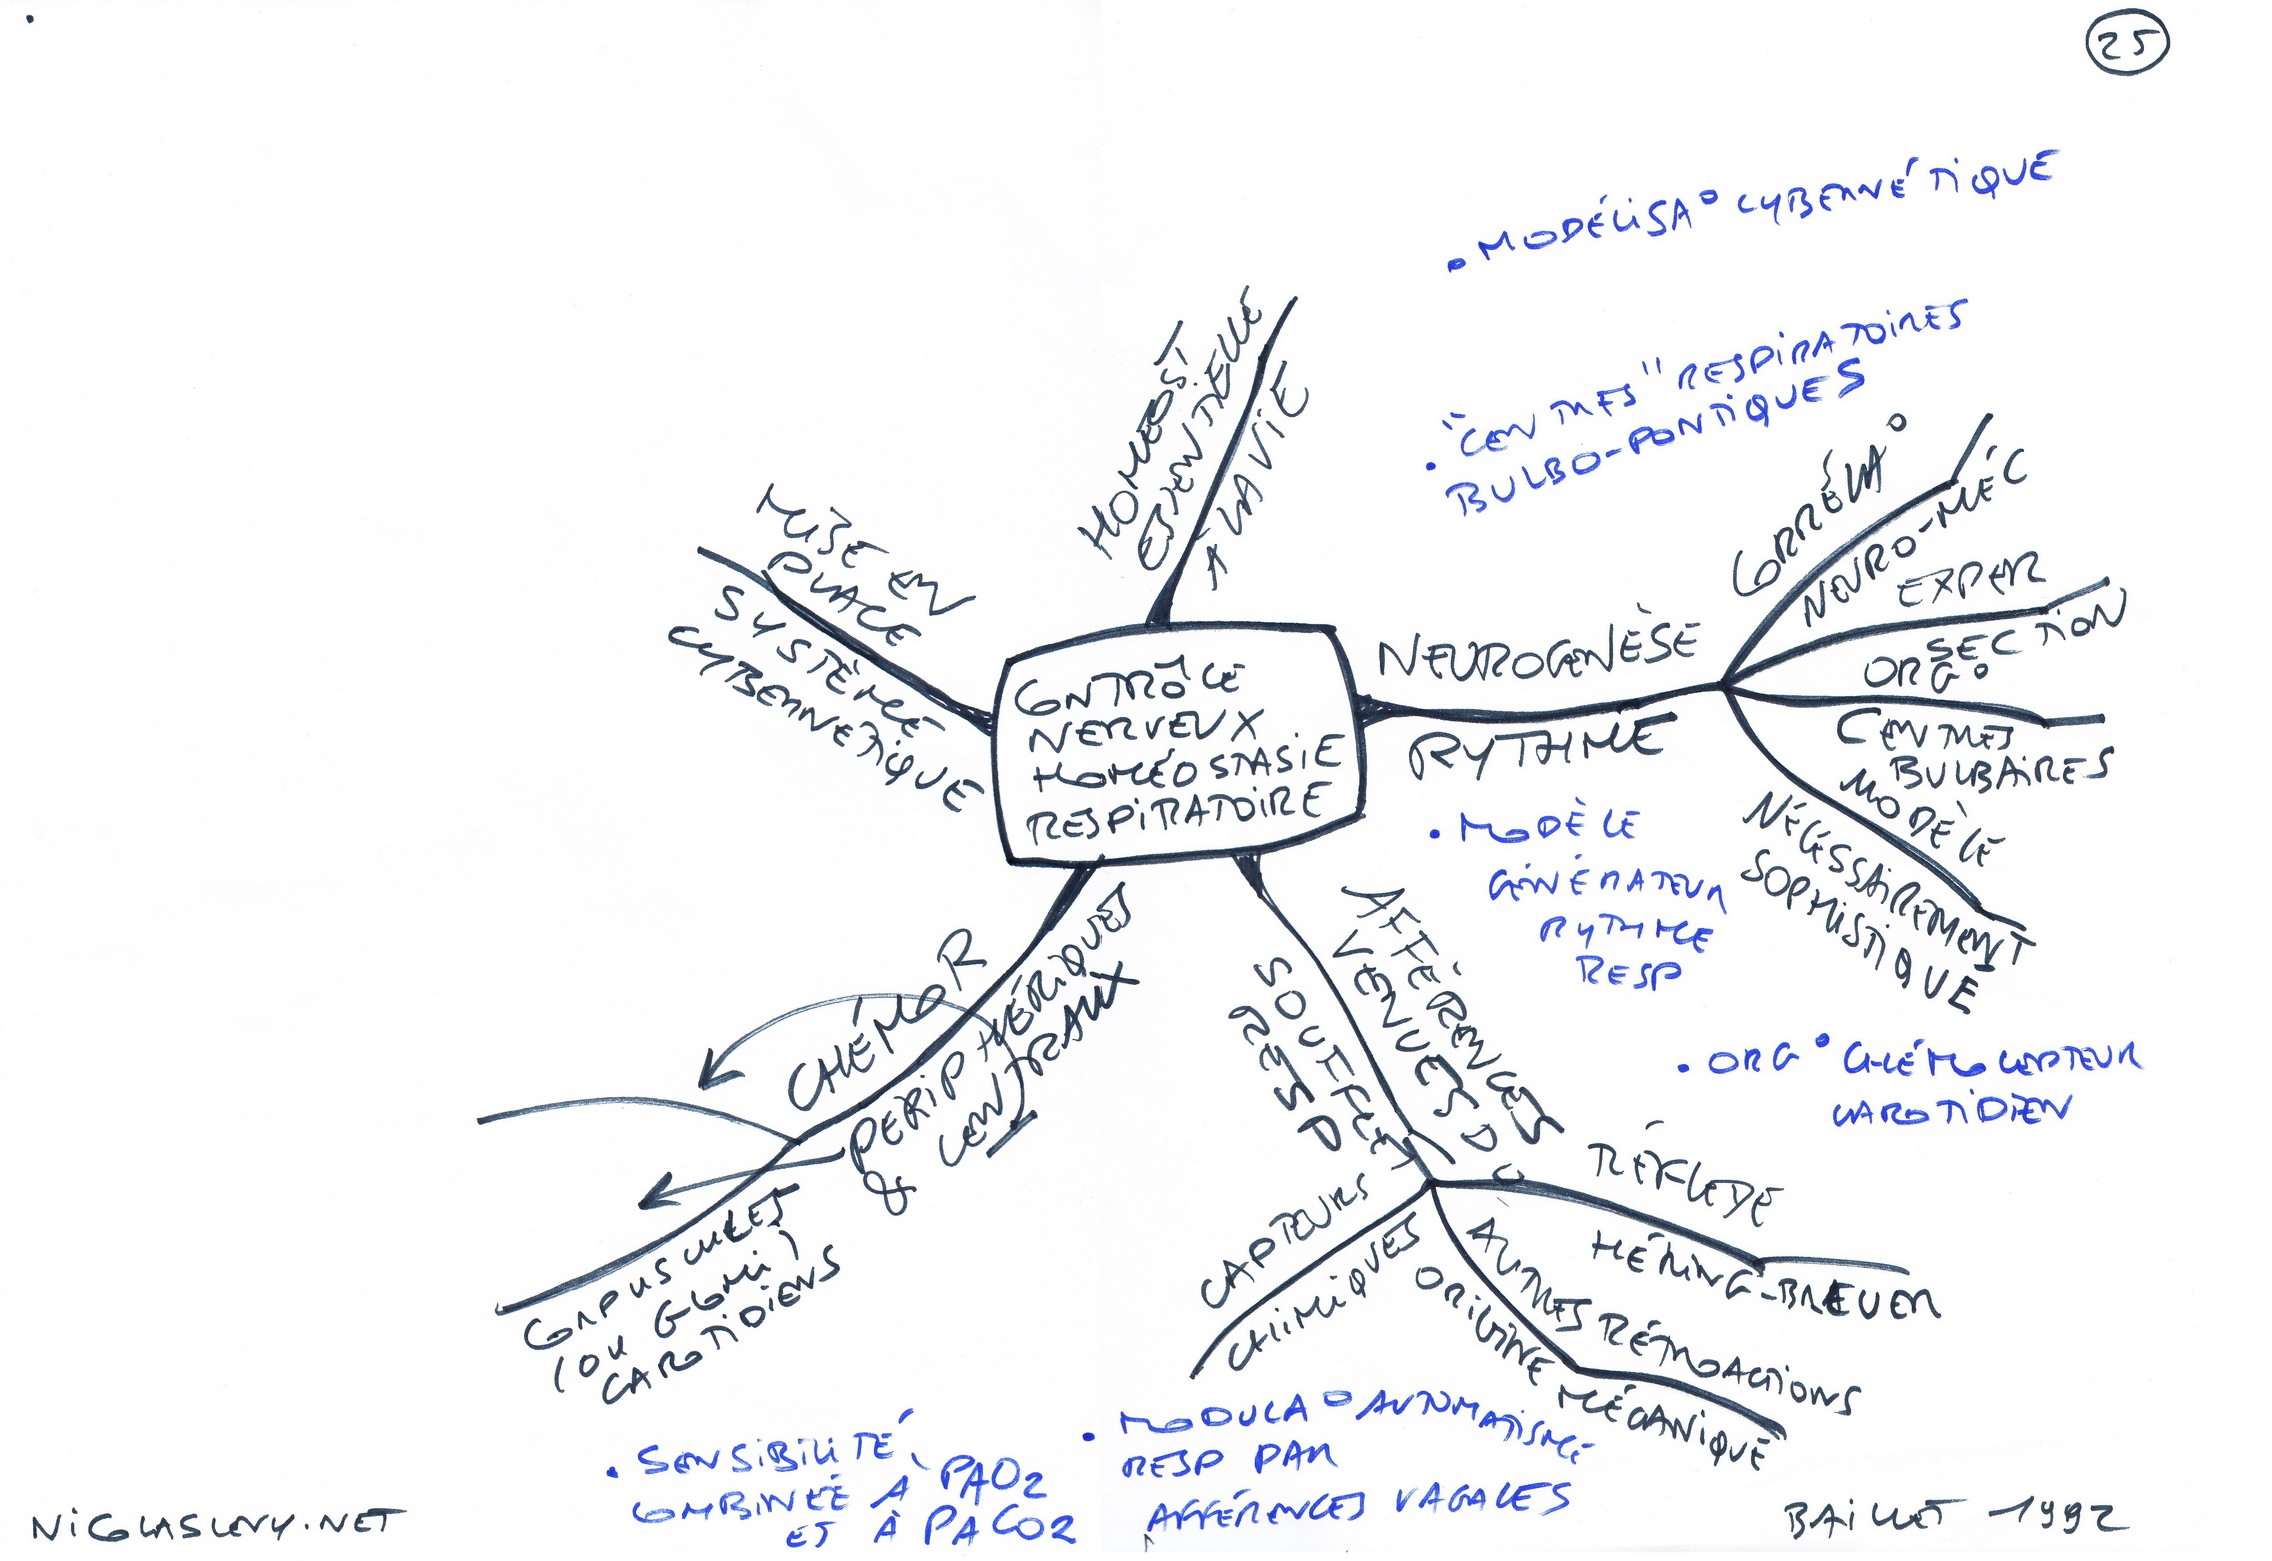 25
• MODÉLISA° CYBERNÉTIQUE
• "CENTRES" RESPIRATOIRES
BULBO-PONTIQUES
HOMÉOST
ESSENTIELLE
À LA VIE
MISE EN
PLACE
SYSTÈME
CYBERNÉTIQUE
CONTRÔLE
NERVEUX
HOMÉOSTASIE
RESPIRATOIRE
NEUROGENÈSE
RYTHME
CORRÉLA°
NEURO-MÉC
EXPER
SECTION
ORG°
CENTRES
BULBAIRES
MODÈLE
NÉCESSAIREMENT
SOPHISTIQUÉ
• MODÈLE
GÉNÉRATEUR
RYTHME
RESP
• ORG° CHÉMOCEPTEUR
CAROTIDIEN
AFFÉRENCES
VENUES DU
SOUFFLET
RESP
RÉFLEXE
HÉRING-BREUER
AUTRES RÉTROACTIONS
ORIGINE MÉCANIQUE
CAPTEURS
CHIMIQUES
CHÉMOR
PÉRIPHÉRIQUES
& CENTRAUX
CORPUSCULES
(OU GLOMI)
CAROTIDIENS
• SENSIBILITÉ
COMBINÉE À PAO2
ET À PACO2
• MODULA° AUTOMATISME
RESP PAR
AFFÉRENCES VAGALES
NICOLASLEVY.NET
BAILLET -1992